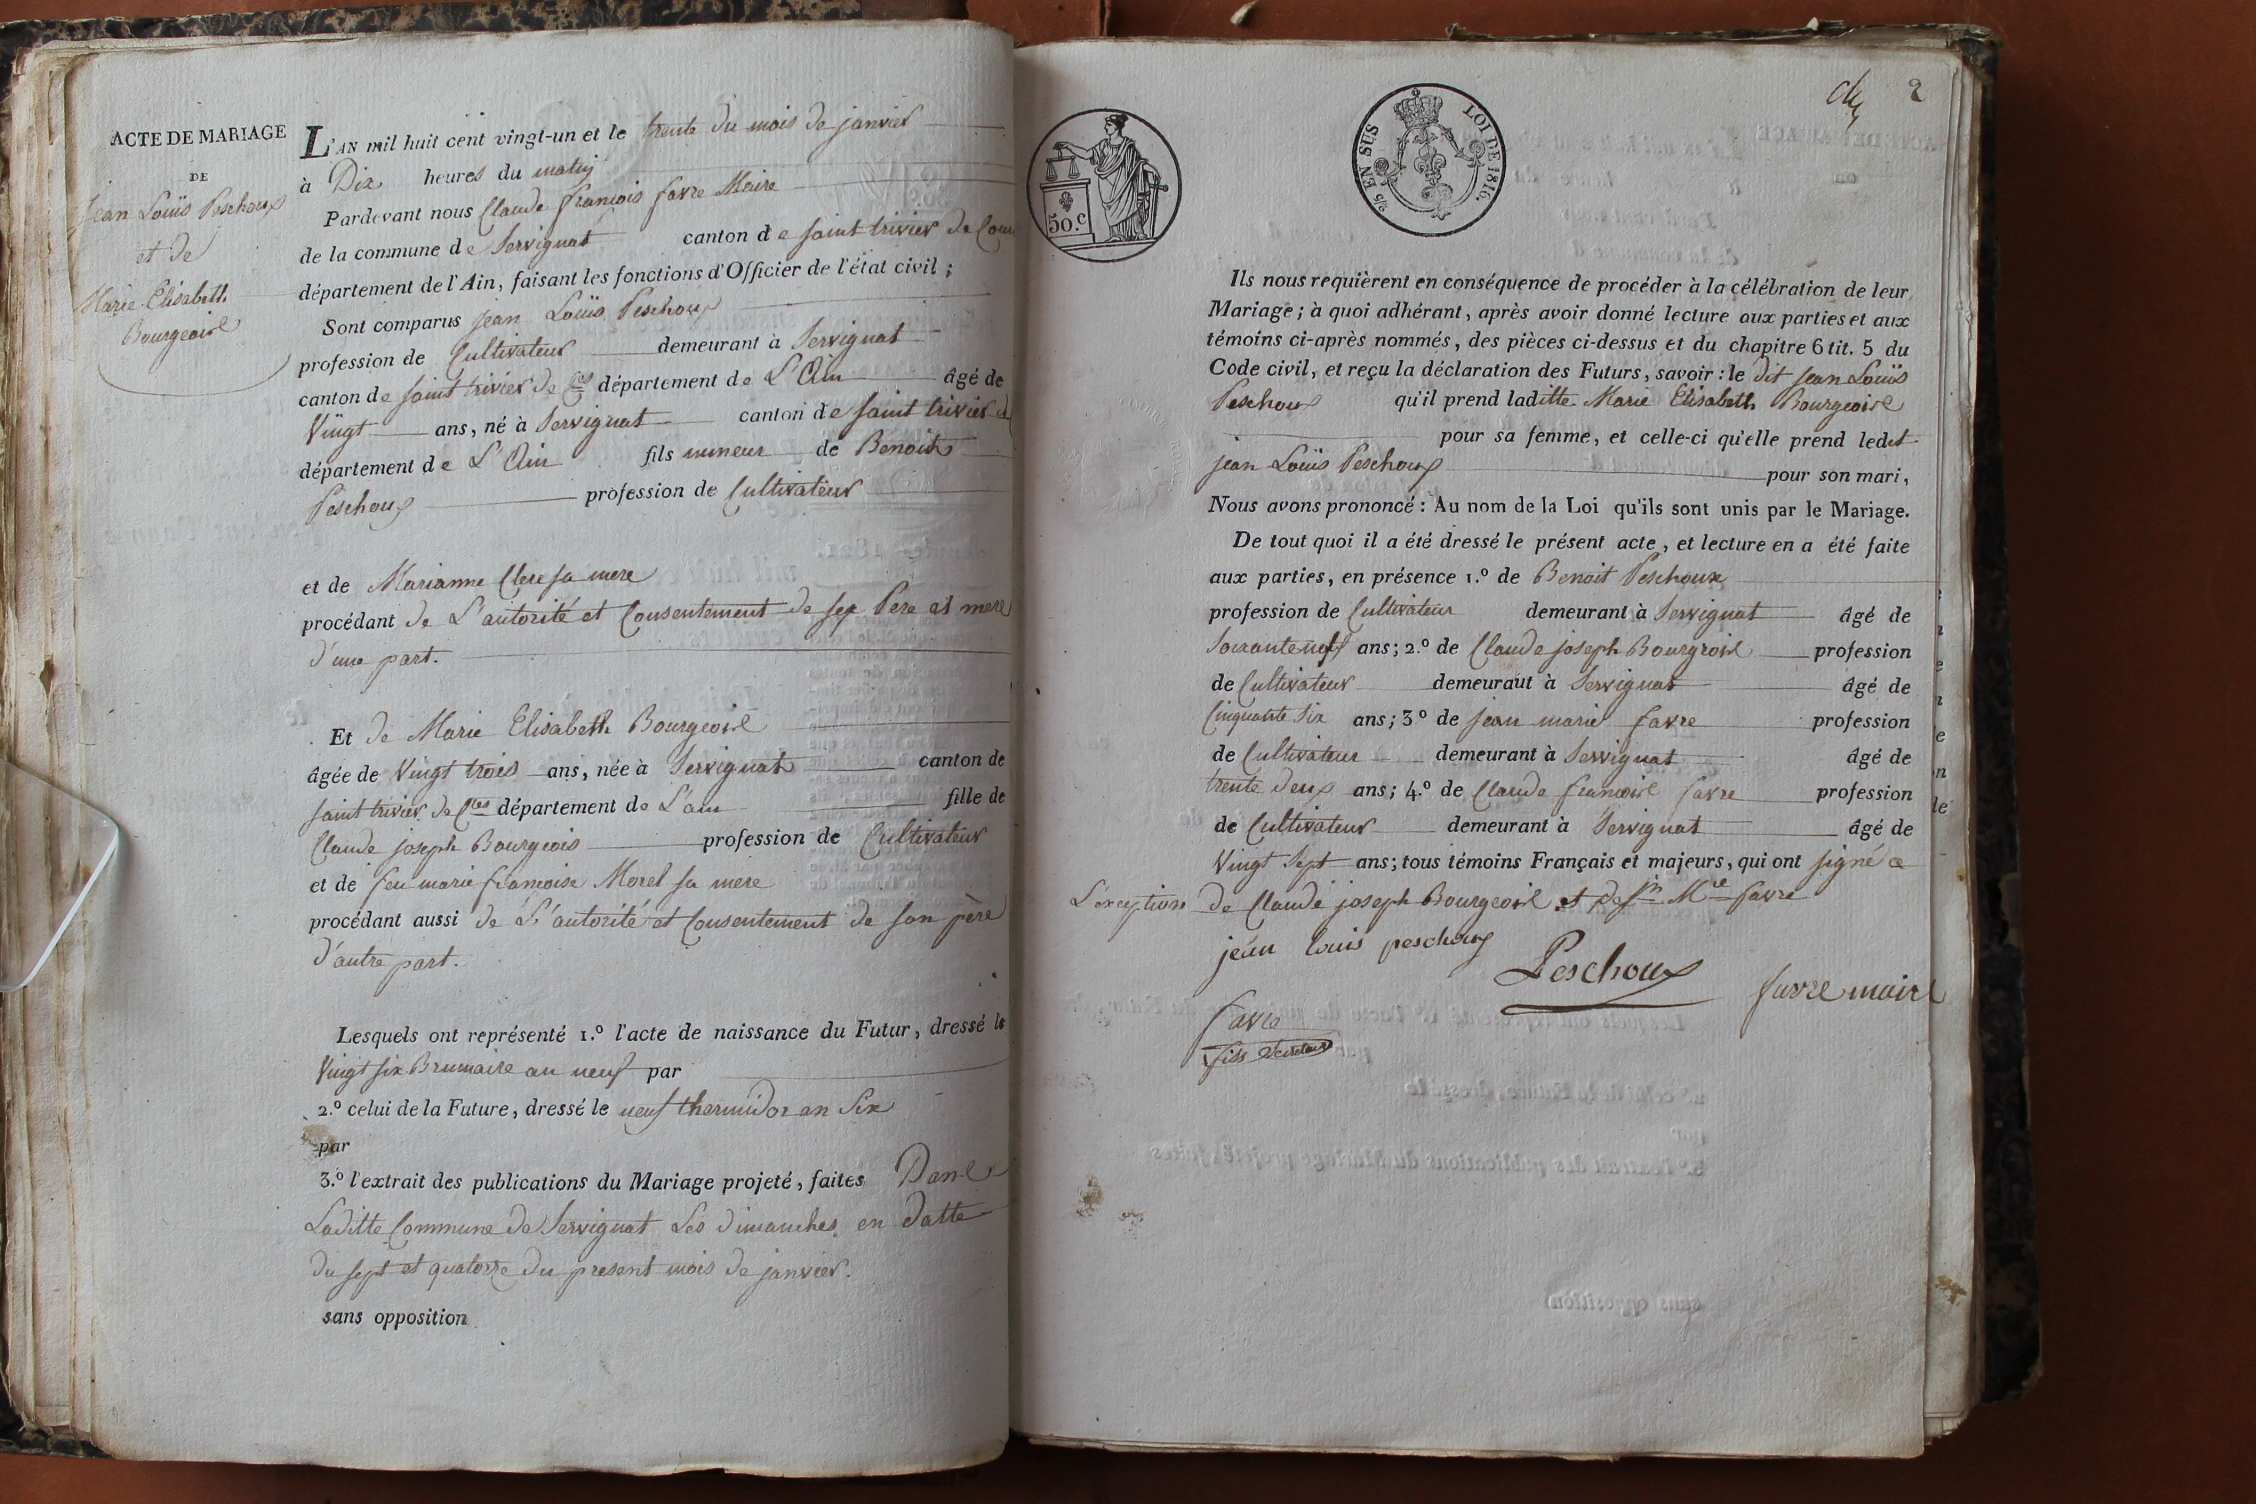 ACTE DE MARIAGE
DE
Jean Louïs Peschoux
et de
Marie Elisabeth
Bourgeois
L'AN mil huit cent vingt-un et le trente du mois de janvier
à Dix heures du matin
Pardevant nous Claude françois favre Maire
de la commune de Servignat canton de saint trivier de Cour
département de l'Ain, faisant les fonctions d'Officier de l'état civil ;
Sont comparus jean Louïs Peschoux
profession de Cultivateur demeurant à Servignat
canton de saint trivier de Ctes département de L'Ain âgé de
Vingt ans, né à Servignat canton de saint trivier d
département de L'Ain fils mineur de Benoit
Peschoux profession de Cultivateur
et de Marianne Clere sa mere
procédant de L'autorité et Consentement de ses Pere et mere
d'une part.
Et de Marie Elisabeth Bourgeois
âgée de Vingt trois ans, née à Servignat canton de
saint trivier de Ctes département de L'ain fille de
Claude joseph Bourgeois profession de Cultivateur
et de feu marie françoise Morel sa mere
procédant aussi de L'autorité et Consentement de son père
d'autre part.
Lesquels ont représenté 1.º l'acte de naissance du Futur, dressé le
Vingt six Brumaire an neuf par
2.º celui de la Future, dressé le neuf thermidor an Six
par
3.º l'extrait des publications du Mariage projeté, faites Dans
Laditte Commune de Servignat Les dimanches en datte
du sept et quatorze du present mois de janvier.
sans opposition
2
50.c
2/5 EN SUS
LOI DE 1816.
Ils nous requièrent en conséquence de procéder à la célébration de leur
Mariage ; à quoi adhérant, après avoir donné lecture aux parties et aux
témoins ci-après nommés, des pièces ci-dessus et du chapitre 6 tit. 5 du
Code civil, et reçu la déclaration des Futurs, savoir : le dit jean Louïs
Peschoux qu'il prend laditte Marie Elisabeth Bourgeois
pour sa femme, et celle-ci qu'elle prend ledit
jean Louïs Peschoux pour son mari,
Nous avons prononcé : Au nom de la Loi qu'ils sont unis par le Mariage.
De tout quoi il a été dressé le présent acte, et lecture en a été faite
aux parties, en présence 1.º de Benoit Peschoux
profession de Cultivateur demeurant à Servignat âgé de
soixante neuf ans ; 2.º de Claude joseph Bourgeois profession
de Cultivateur demeurant à Servignat âgé de
Cinquante Six ans ; 3.º de jean marie favre profession
de Cultivateur demeurant à Servignat âgé de
trente deux ans ; 4.º de Claude françois favre profession
de Cultivateur demeurant à Servignat âgé de
Vingt Sept ans ; tous témoins Français et majeurs, qui ont signé a
L'exception de Claude joseph Bourgeois et de jn Mie favre
jean louis peschoux
Peschoux
favre maire
favre
fils Secretaire